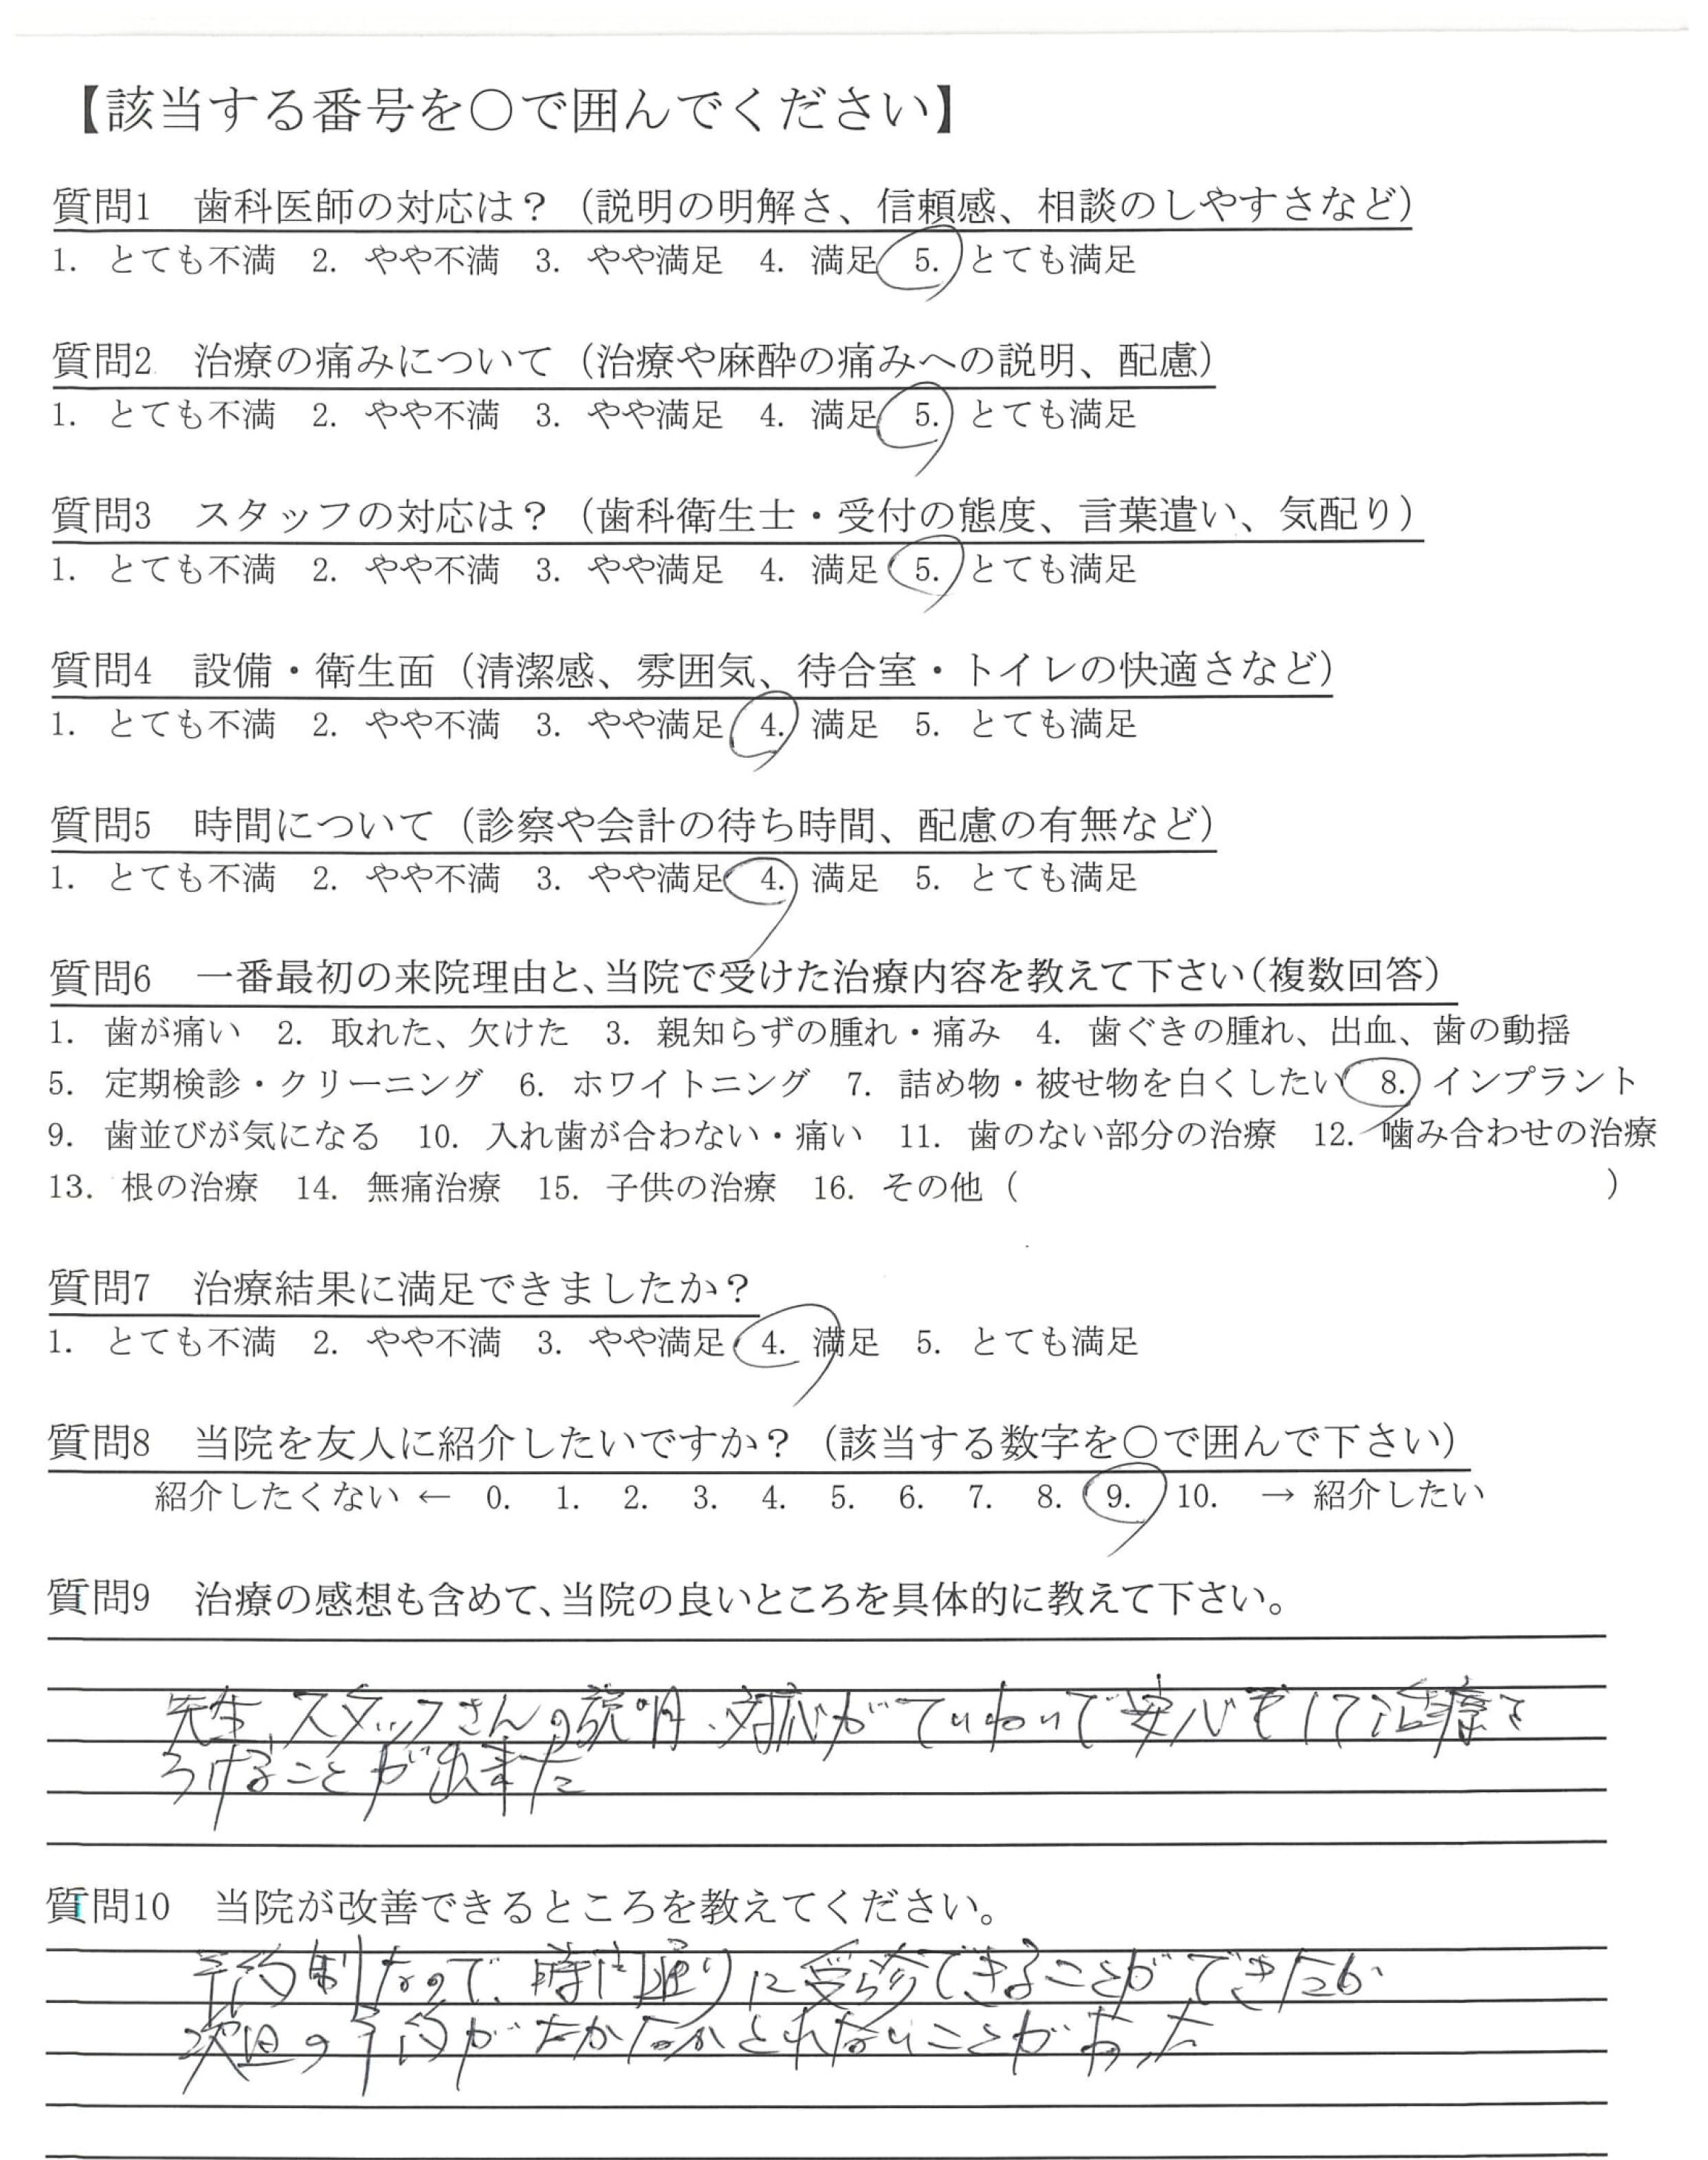 【該当する番号を○で囲んでください】
質問1 歯科医師の対応は？（説明の明解さ、信頼感、相談のしやすさなど）
1. とても不満 2. やや不満 3. やや満足 4. 満足 5. とても満足
質問2 治療の痛みについて（治療や麻酔の痛みへの説明、配慮）
1. とても不満 2. やや不満 3. やや満足 4. 満足 5. とても満足
質問3 スタッフの対応は？（歯科衛生士・受付の態度、言葉遣い、気配り）
1. とても不満 2. やや不満 3. やや満足 4. 満足 5. とても満足
質問4 設備・衛生面（清潔感、雰囲気、待合室・トイレの快適さなど）
1. とても不満 2. やや不満 3. やや満足 4. 満足 5. とても満足
質問5 時間について（診察や会計の待ち時間、配慮の有無など）
1. とても不満 2. やや不満 3. やや満足 4. 満足 5. とても満足
質問6 一番最初の来院理由と、当院で受けた治療内容を教えて下さい（複数回答）
1. 歯が痛い 2. 取れた、欠けた 3. 親知らずの腫れ・痛み 4. 歯ぐきの腫れ、出血、歯の動揺
5. 定期検診・クリーニング 6. ホワイトニング 7. 詰め物・被せ物を白くしたい 8. インプラント
9. 歯並びが気になる 10. 入れ歯が合わない・痛い 11. 歯のない部分の治療 12. 噛み合わせの治療
13. 根の治療 14. 無痛治療 15. 子供の治療 16. その他（ ）
質問7 治療結果に満足できましたか？
1. とても不満 2. やや不満 3. やや満足 4. 満足 5. とても満足
質問8 当院を友人に紹介したいですか？（該当する数字を○で囲んで下さい）
紹介したくない ← 0. 1. 2. 3. 4. 5. 6. 7. 8. 9. 10. → 紹介したい
質問9 治療の感想も含めて、当院の良いところを具体的に教えて下さい。
先生、スタッフさんの説明、対応がていねいで安心して治療を
うけることが出来た
質問10 当院が改善できるところを教えてください。
予約制なので、時間通りに受診できることができたが
次回の予約がなかなかとれないことがあった